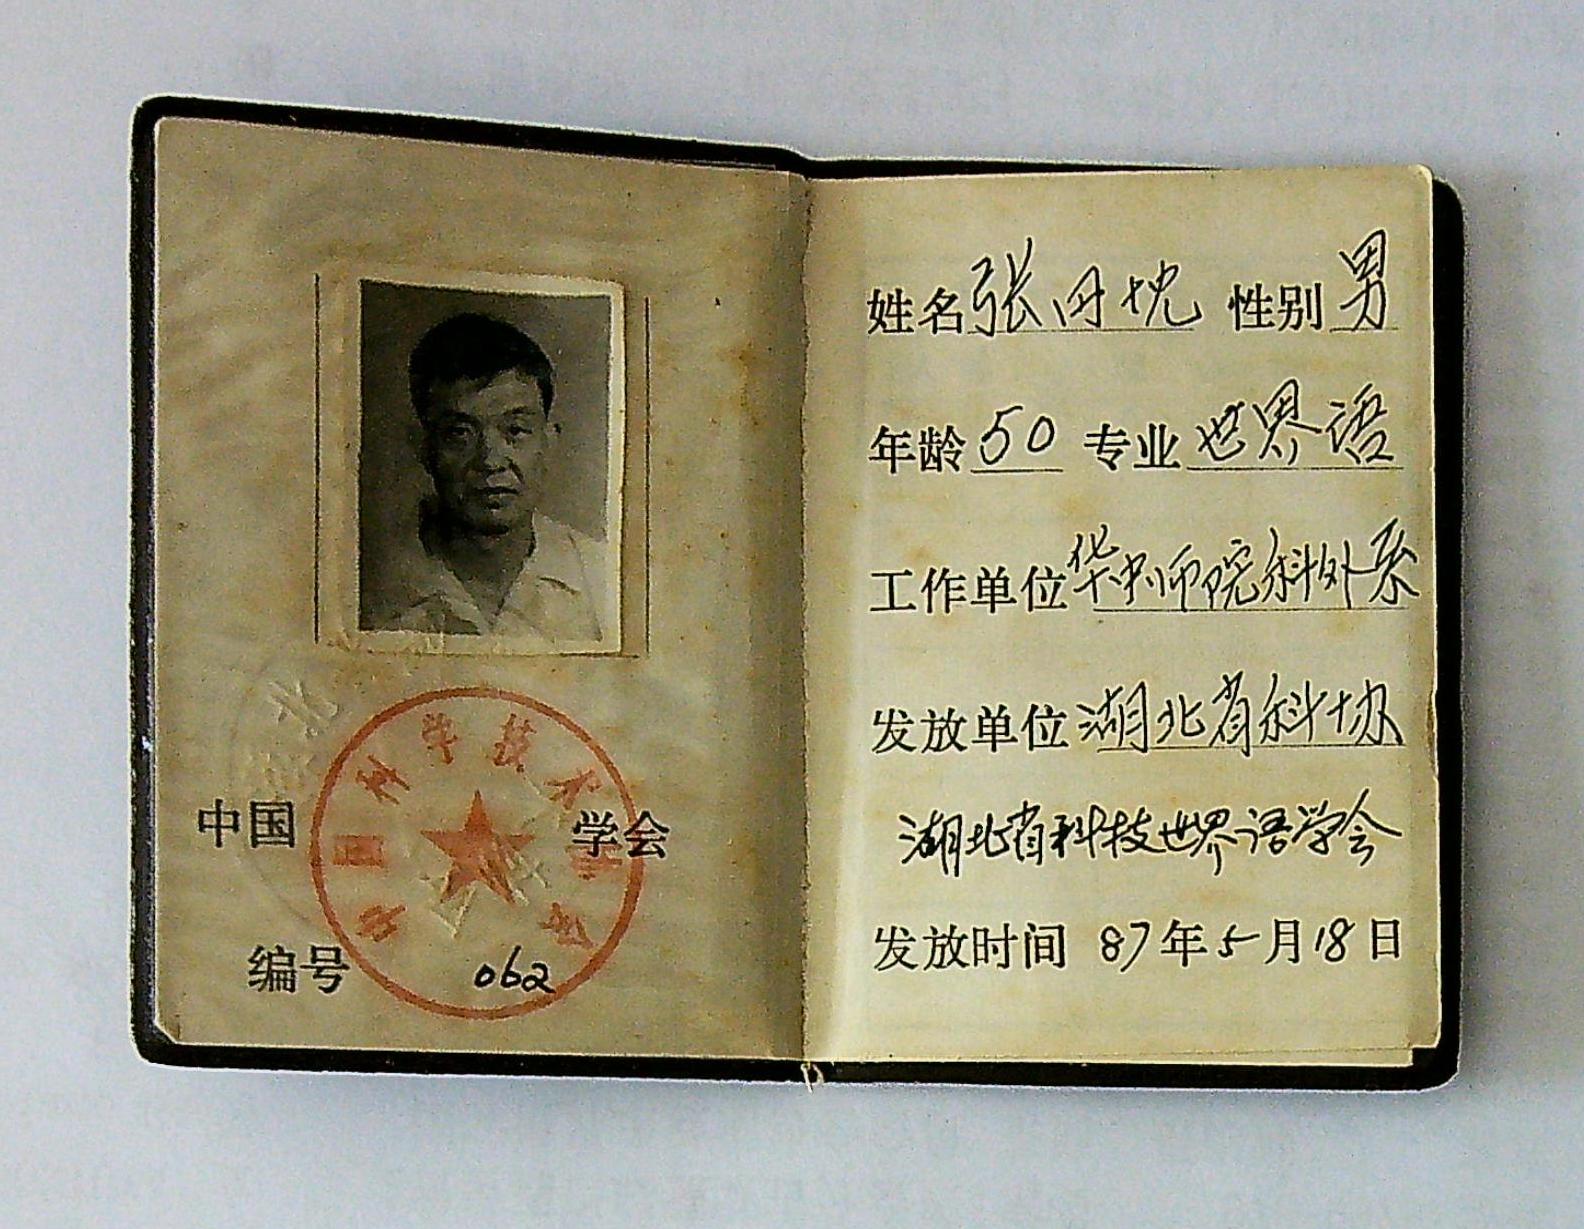 中国 学会
编号 062
中国科学技术协会
北
姓名 张丹忱 性别 男
年龄 50 专业 世界语
工作单位 华中师院科外系
发放单位 湖北省科协
湖北省科技世界语学会
发放时间 87年5月18日